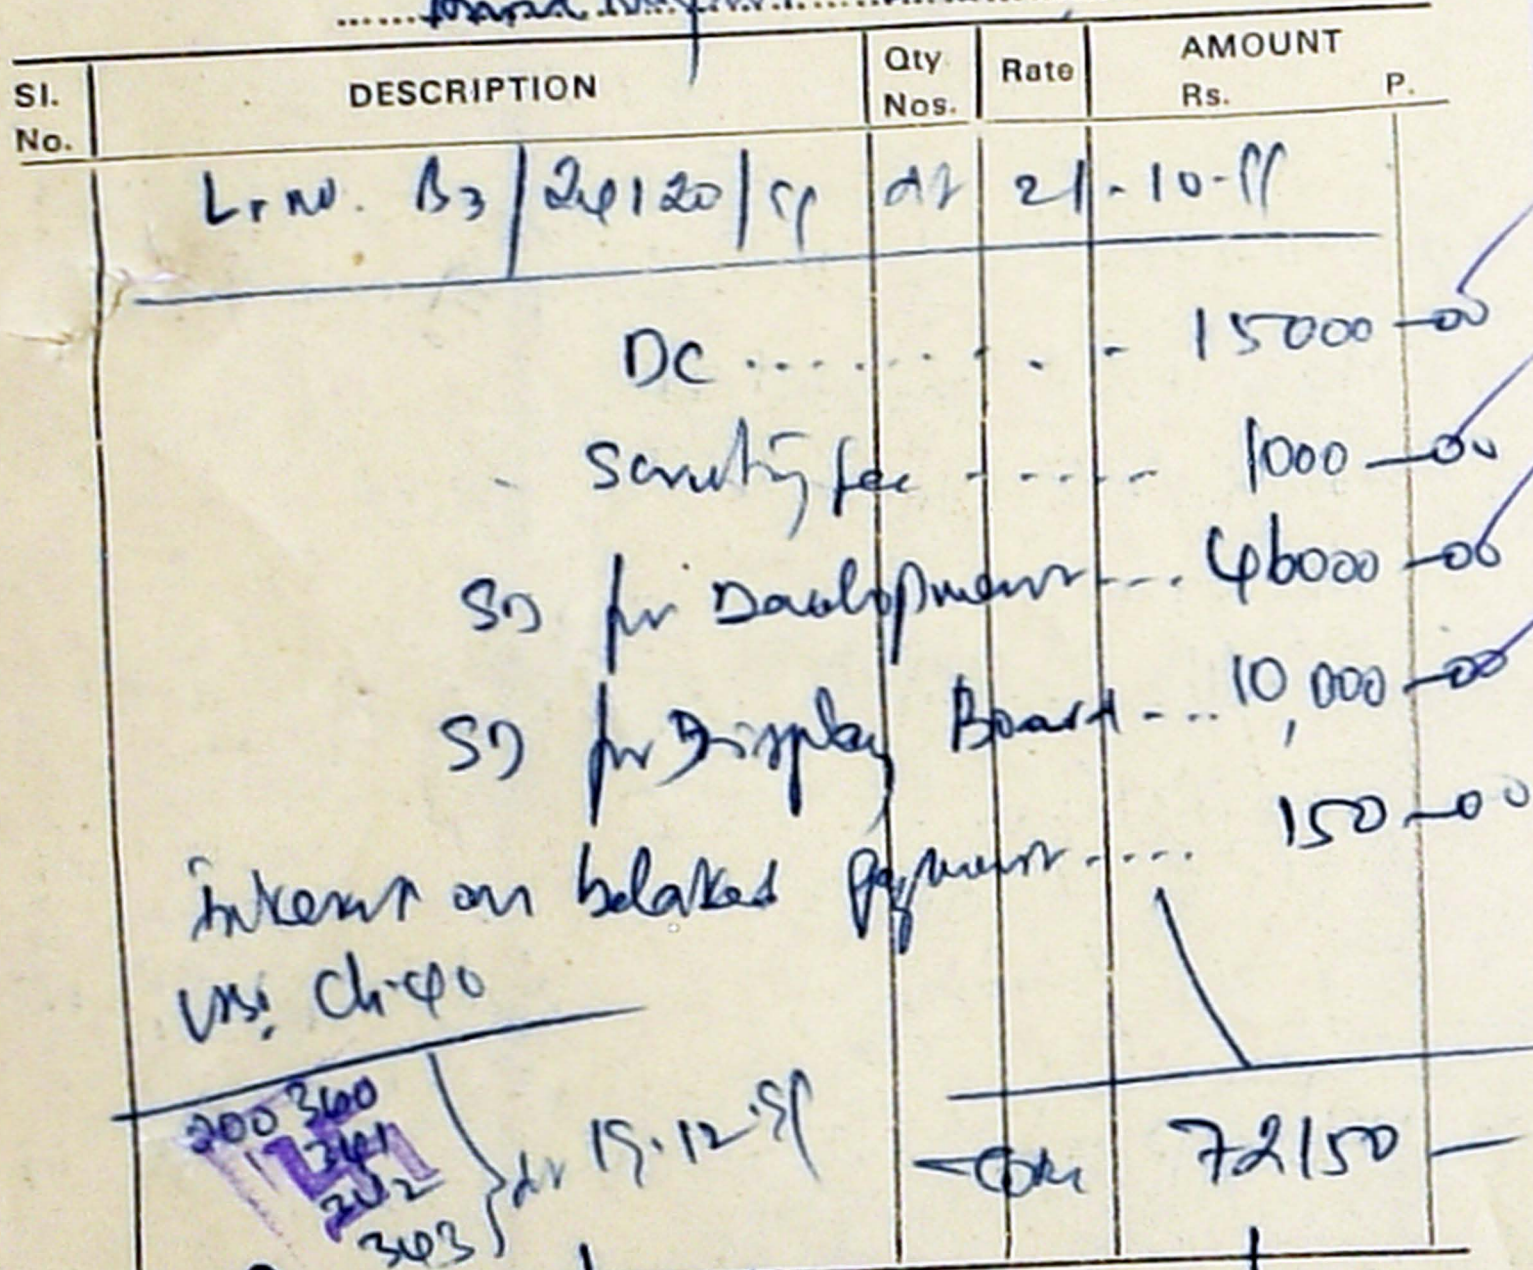 Sl. No. DESCRIPTION Qty Nos. Rate AMOUNT Rs. P.
Lr no. B3/24120/99 dt 21-10-99
DC ........ - 15000-00
Scrutiny fee ------ 1000-00
SD for Development---- 46000-00
SD for Display Board---- 10,000-00
150-00
interest on belated payment----
Ch-40
200340
341
342
343
dt 19.12.99
72150-